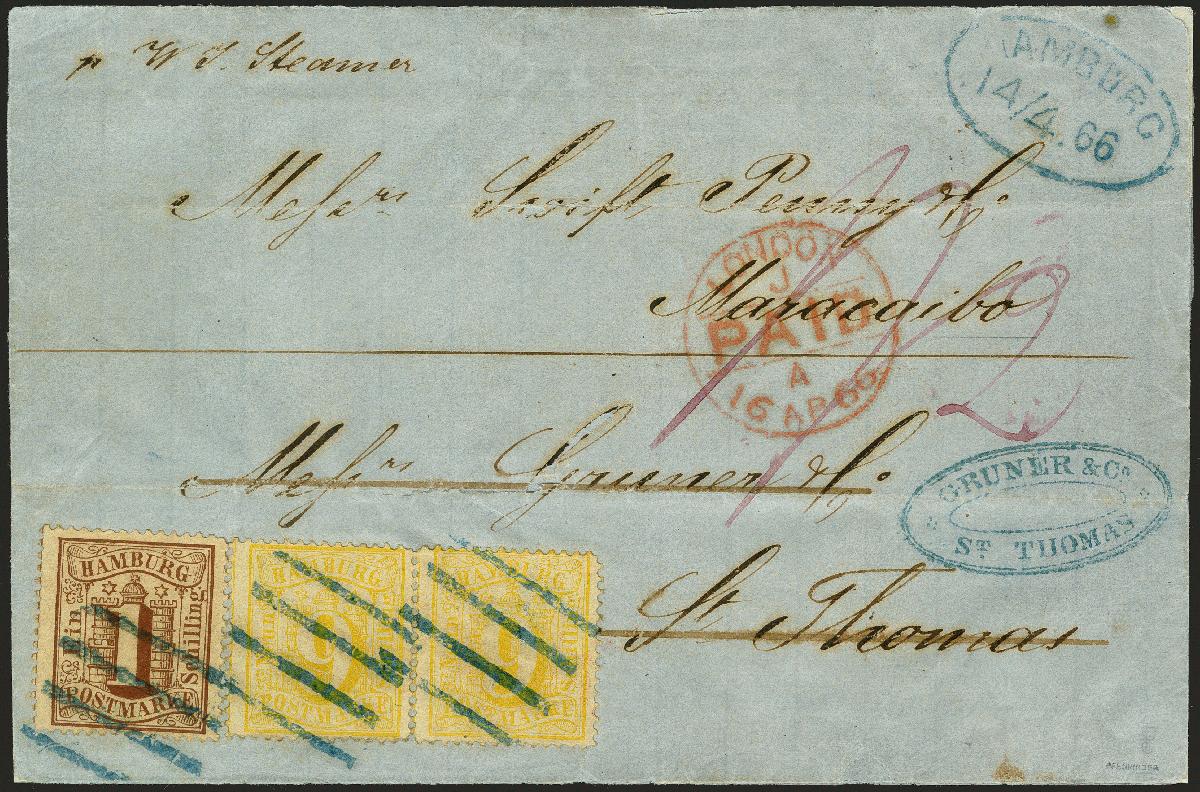 p W. I. Steamer
HAMBURG
14/4.66
Messrs Swift Penny & Co
Maracaibo
LONDON
J
PAID
A
16 AP 66
Messrs Gruner & Co
St Thomas
GRUNER & Co.
ST. THOMAS
HAMBURG
Ein
1
Schilling
POSTMARKE
HAMBURG
9
POSTMARKE
HAMBURG
9
POSTMARKE